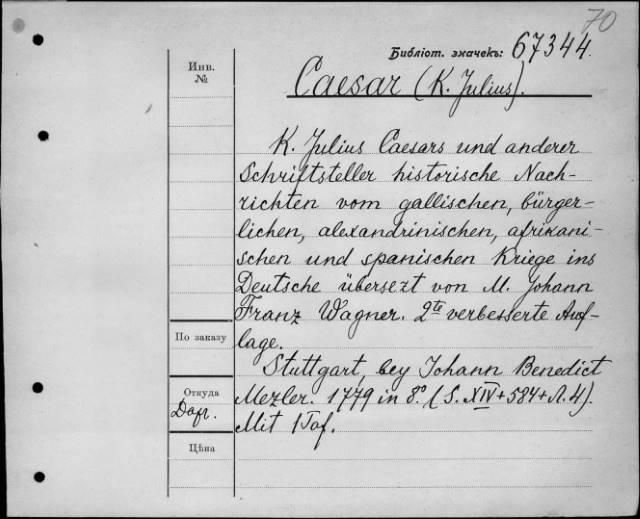 70
Библіот. значекъ: 67344.
Инв.
№
Caesar (K. Julius).
K. Julius Caesars und anderer
Schriftsteller historische Nach-
richten vom gallischen, bürger-
lichen, alexandrinischen, afrikani-
schen und spanischen Kriege ins
Deutsche übersezt von M. Johann
Franz Wagner. 2te verbesserte Auf-
По заказу
lage.
Stuttgart, bey Johann Benedict
Откуда
Mezler. 1779 in 8.° (S. XIV+584+Л. 4).
Mit 1 Taf.
Цѣна